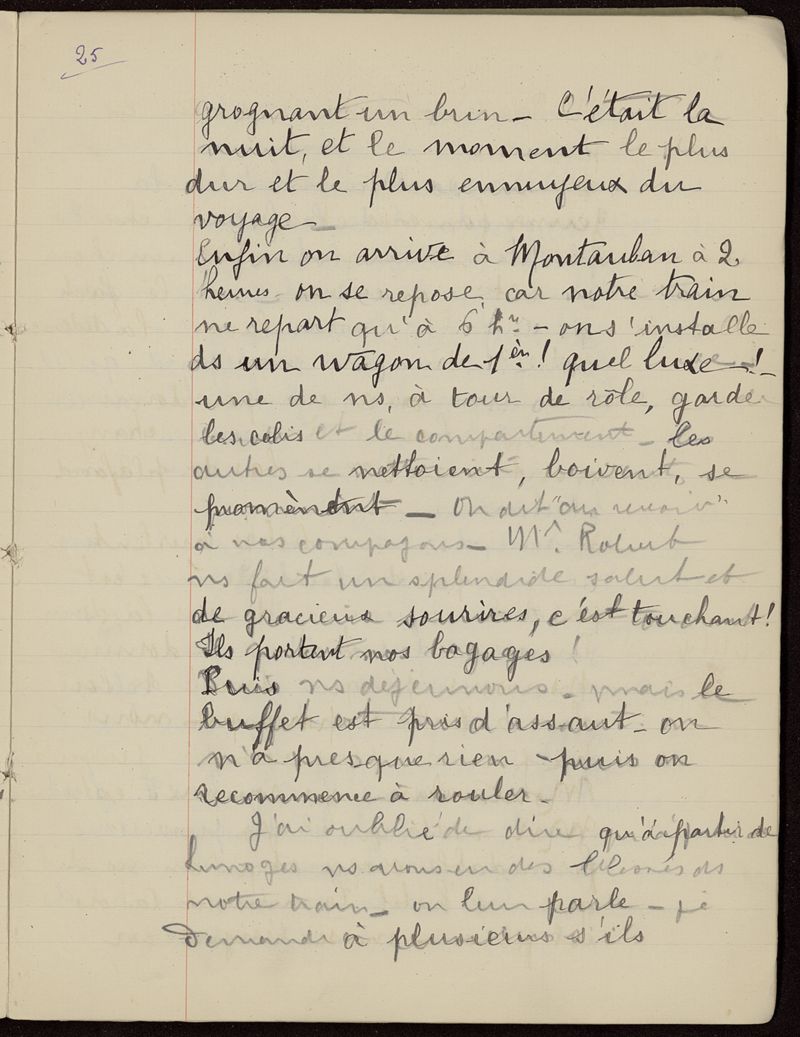 25
grognant un brin - C'était la
nuit, et le moment le plus
dur et le plus ennuyeux du
voyage -
Enfin on arrive à Montauban à 2
heures on se repose, car notre train
ne repart qu'à 6 hrs - on s'installe
ds un wagon de 1ère ! quel luxe ! -
une de ns, à tour de rôle, garde
les colis et le compartiment - les
autres se nettoient, boivent, se
promènent - On dit "au revoir"
à nos compagnons - Mr. Robert
ns fait un splendide salut et
de gracieux sourires, c'est touchant !
Ils portent nos bagages !
Puis ns déjeunons - mais le
buffet est pris d'assaut - on
n'a presque rien - puis on
recommence à rouler -
J'ai oublié de dire qu'à partir de
Limoges ns avons eu des blessés ds
notre train - on leur parle - je
demande à plusieurs s'ils